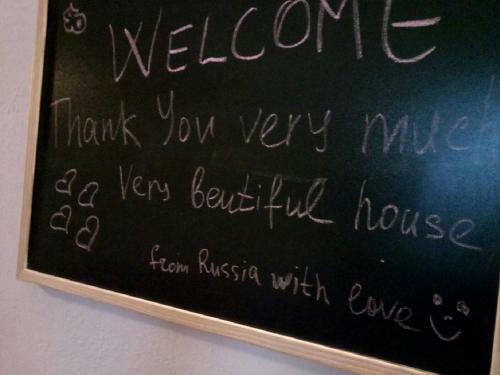 WELCOME
Thank You very much
Very beutiful house
from Russia with love